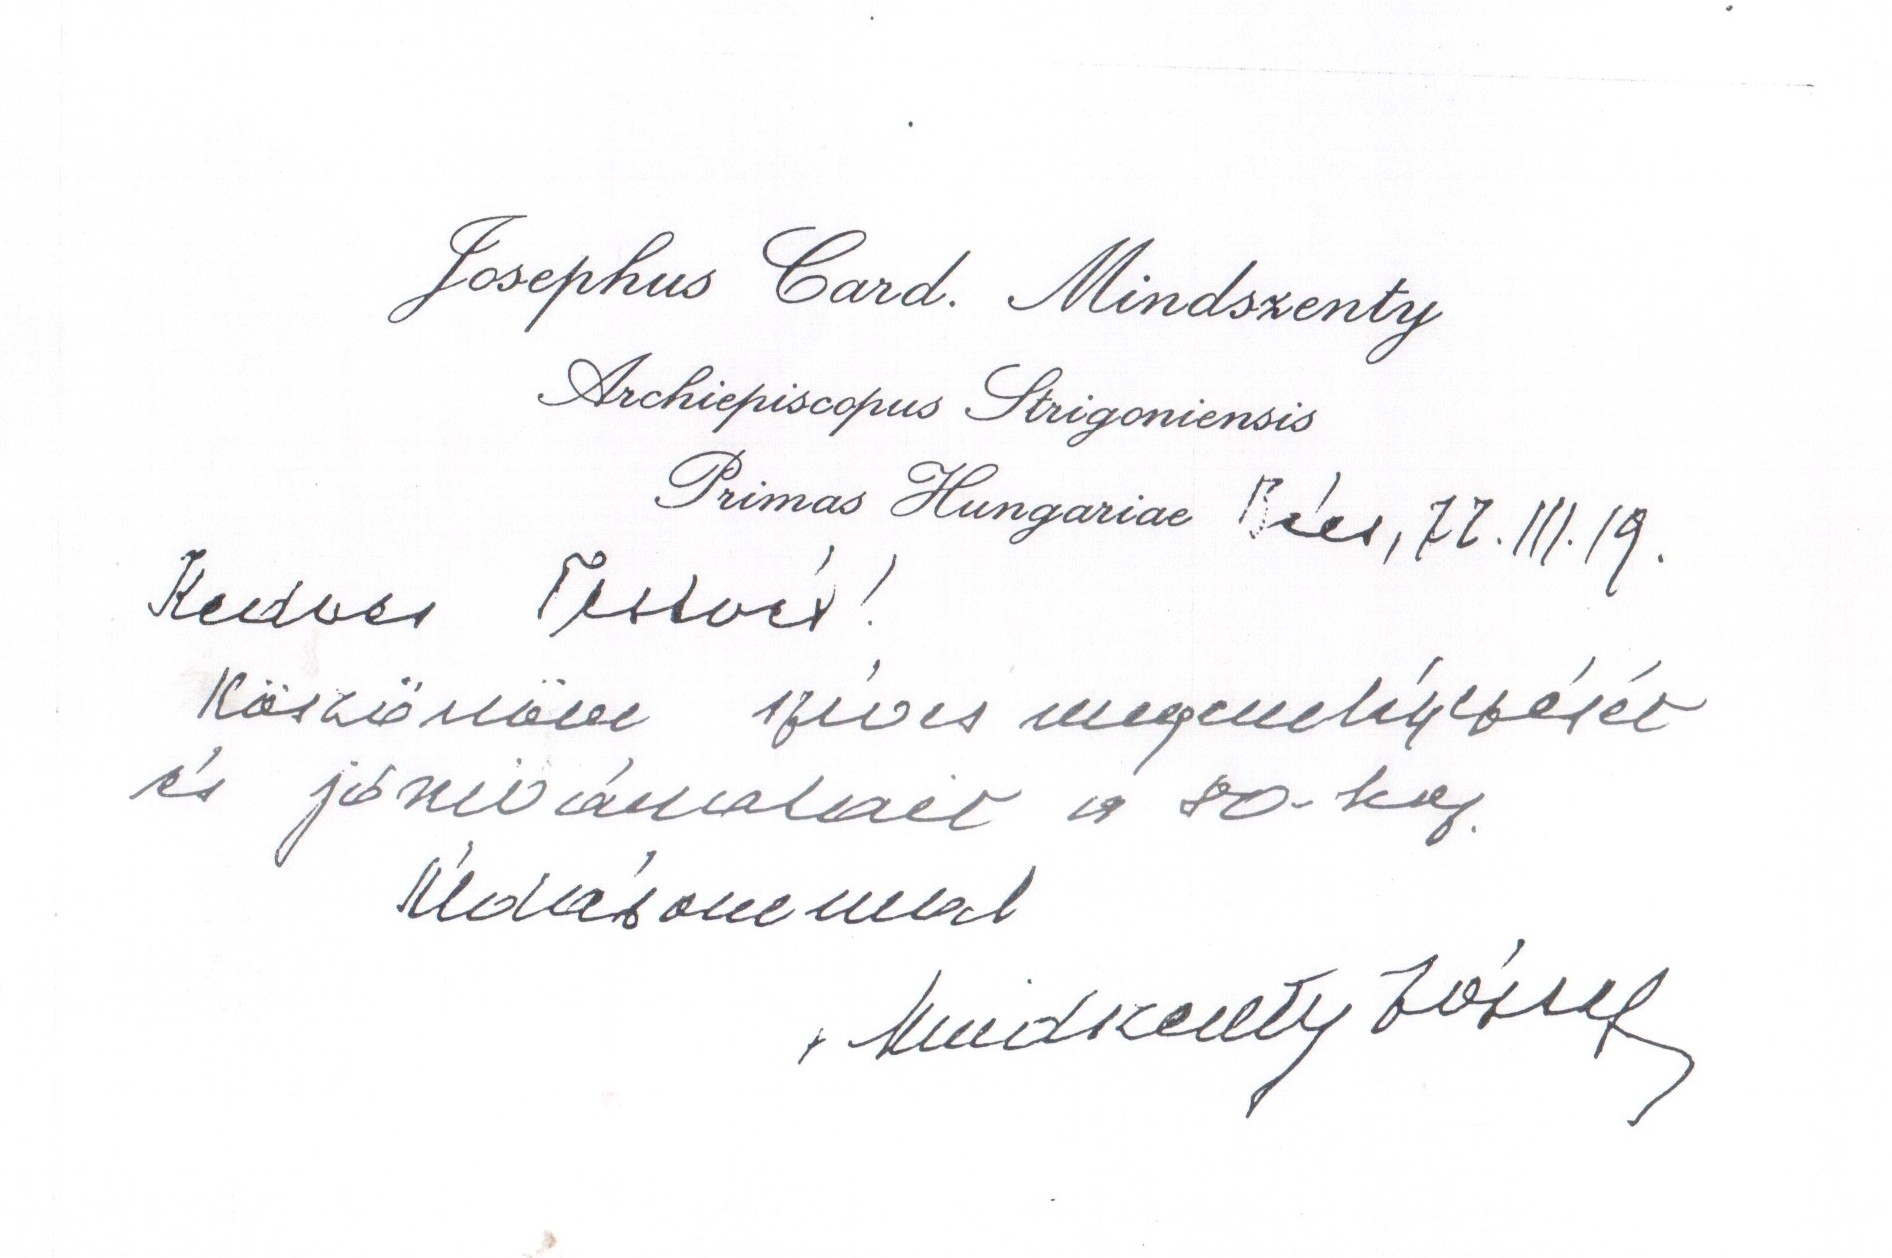 Josephus Card. Mindszenty
Archiepiscopus Strigoniensis
Primas Hungariae Bécs, 72.III.19.
Kedves Testvér!
Köszönöm szíves megemlékezését
és jókivánatait a 80-
áldásommal
+ Mindszenty József